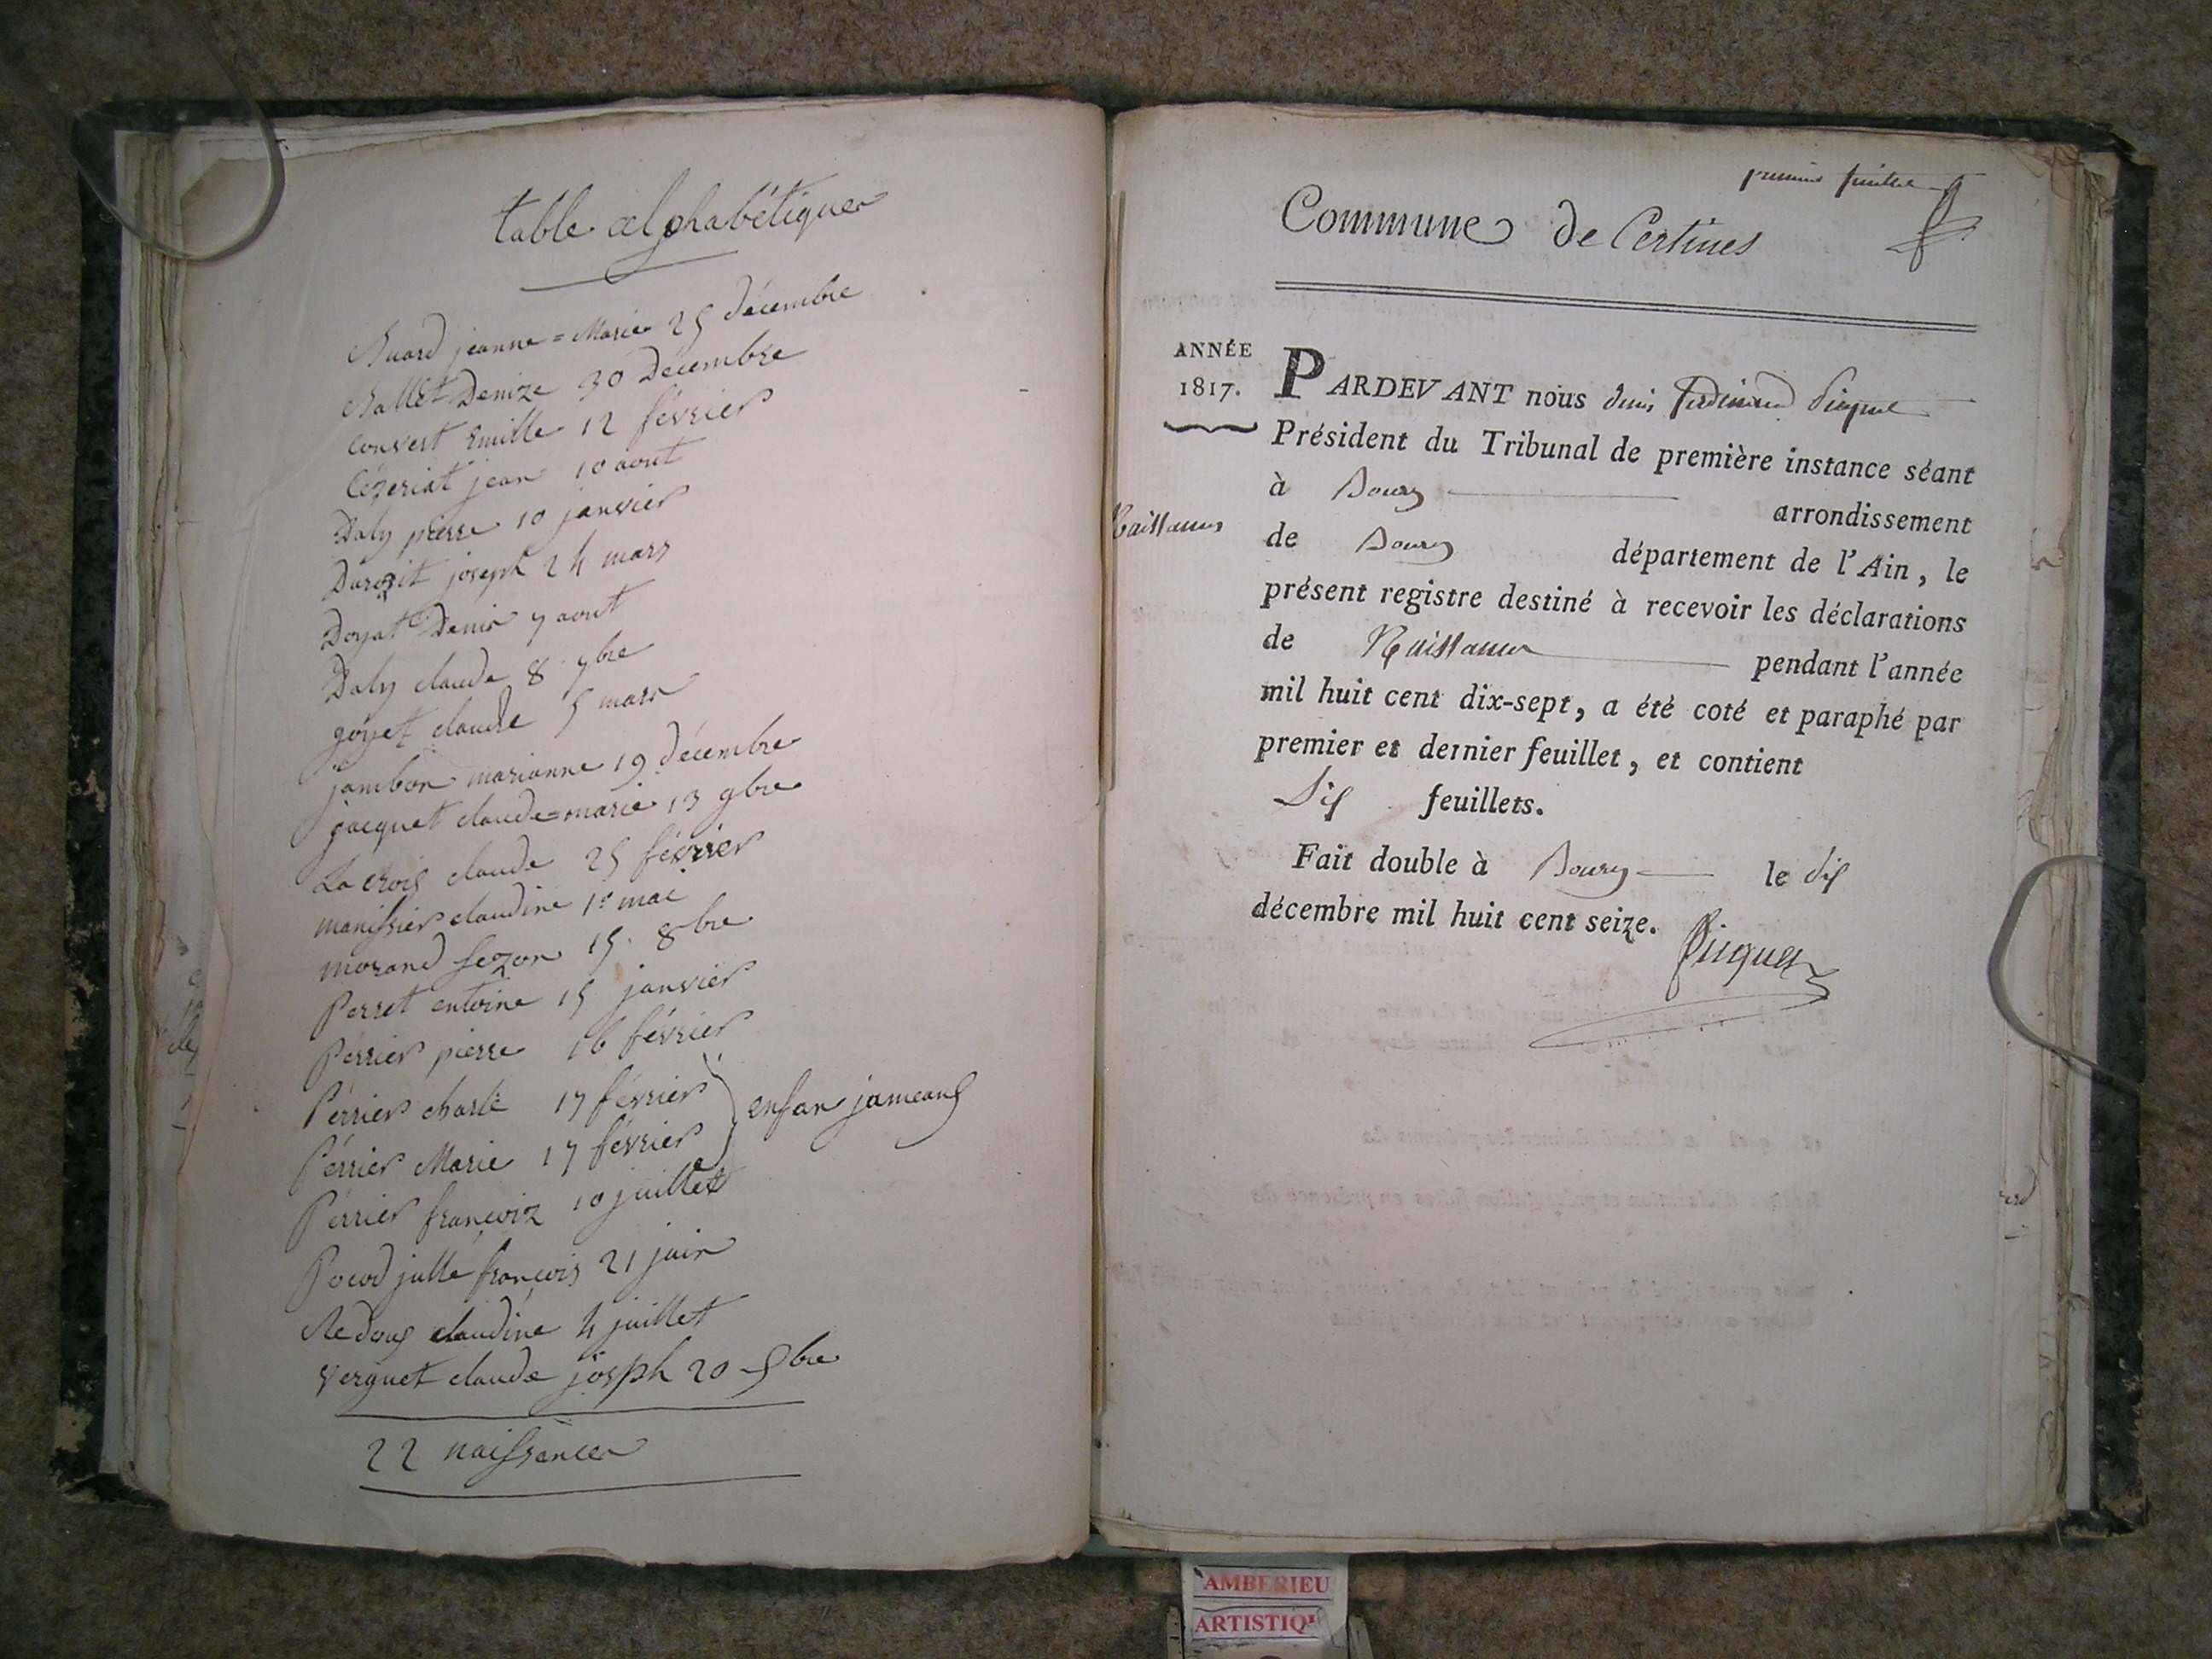 table alphabétique
Buard jeanne=Marie 25 décembre
Ballet Denize 30 Décembre
convert Emille 12 février
Cézeriat jean 10 aout
Daly pierre 10 janvier
joseph 24 mars
Doyat Denis 7 aout
Daly claude 8 7bre
goyet claude 5 mars
jambon marianne 19 décembre
jacquet claude=marie 13 9bre
La croix claude 25 février
manissier claudine 1er mai
morand 15 8bre
Perret entoine 15 janvier
Pérrier pierre 16 février
Pérrier charle 17 février
Pérrier Marie 17 février
enfan jameaux
Pérrier françoiz 10 juillet
Pocod julle françois 21 juin
Redoux claudine 4 juillet
verguet claude josph 20 bre
22 naissances
premier feuillet
Commune de Certines
ANNÉE
1817.
Naissances
PARDEVANT nous Denis Ferdinand Picquet
Président du Tribunal de première instance séant
à Bourg arrondissement
de Bourg département de l'Ain, le
présent registre destiné à recevoir les déclarations
de Naissances pendant l'année
mil huit cent dix-sept, a été coté et paraphé par
premier et dernier feuillet, et contient
Six feuillets.
Fait double à Bourg le dix
décembre mil huit cent seize.
Picquet
AMBERIEU
ARTISTIQ